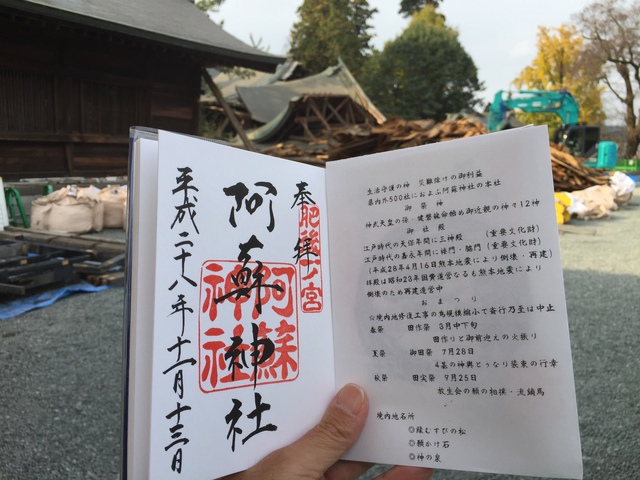 奉拝
肥後一ノ宮
阿蘇神社
阿蘇神社
平成二十八年十一月十三日
生活守護の神 災難除けの御利益
県内外500社におよぶ阿蘇神社の本社
御祭神
神武天皇の孫・健磐龍命始め御近親の神々12神
御社殿
江戸時代の天保年間に三神殿 (重要文化財)
江戸時代の嘉永年間に楼門・脇門 (重要文化財)
(平成28年4月16日熊本地震により倒壊・再建)
拝殿は昭和23年国費造営なるも熊本地震により
倒壊のため再建造営中
おまつり
☆境内地修復工事の為規模縮小で斎行乃至は中止
春祭 田作祭 3月中下旬
田作りと御前迎えの火振り
夏祭 御田祭 7月28日
4基の神輿とうなり装束の行幸
秋祭 田実祭 9月25日
放生会の願の相撲・流鏑馬
境内地名所
◎縁むすびの松
◎願かけ石
◎神の泉